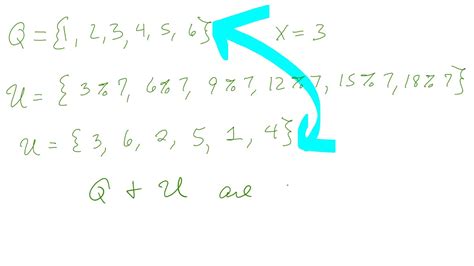 Q = {1, 2, 3, 4, 5, 6} X = 3
U = { 3%7, 6%7, 9%7, 12%7, 15%7, 18%7}
U = { 3, 6, 2, 5, 1, 4}
Q + U are